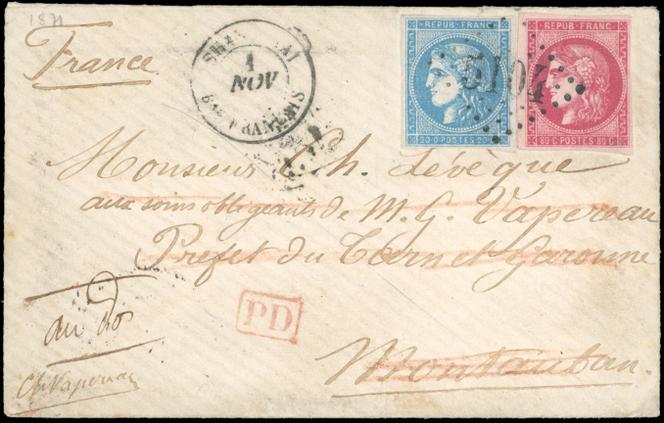 1871
France
SHANG-HAI
1
NOV
BAU FRANÇAIS
REPUB·FRANC
20·C·POSTES·20·C
REPUB·FRANC
80·C·POSTES·80·C
5104
Monsieur Ch. Lévêque
aux soins obligeants de M. G. Vapereau
Préfet du Tarn et Garonne
Montauban.
PD
au dos
Ch Vapereau